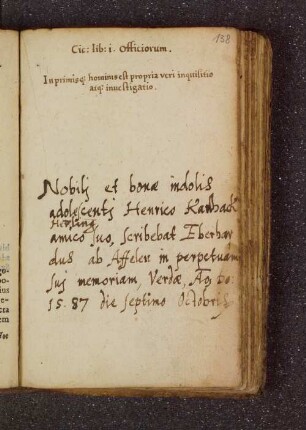 138
Cic: lib: i. Officiorum.
In primisq; hominis est propria veri inquisitio
atq; investigatio.
Nobilis et bonæ indolis
adolescentj Henrico
amico suo, scribebat Eberhar
dus ab Affelen in perpetuam
suj memoriam, Verdæ, Ao
15.87 die septimo Octobris